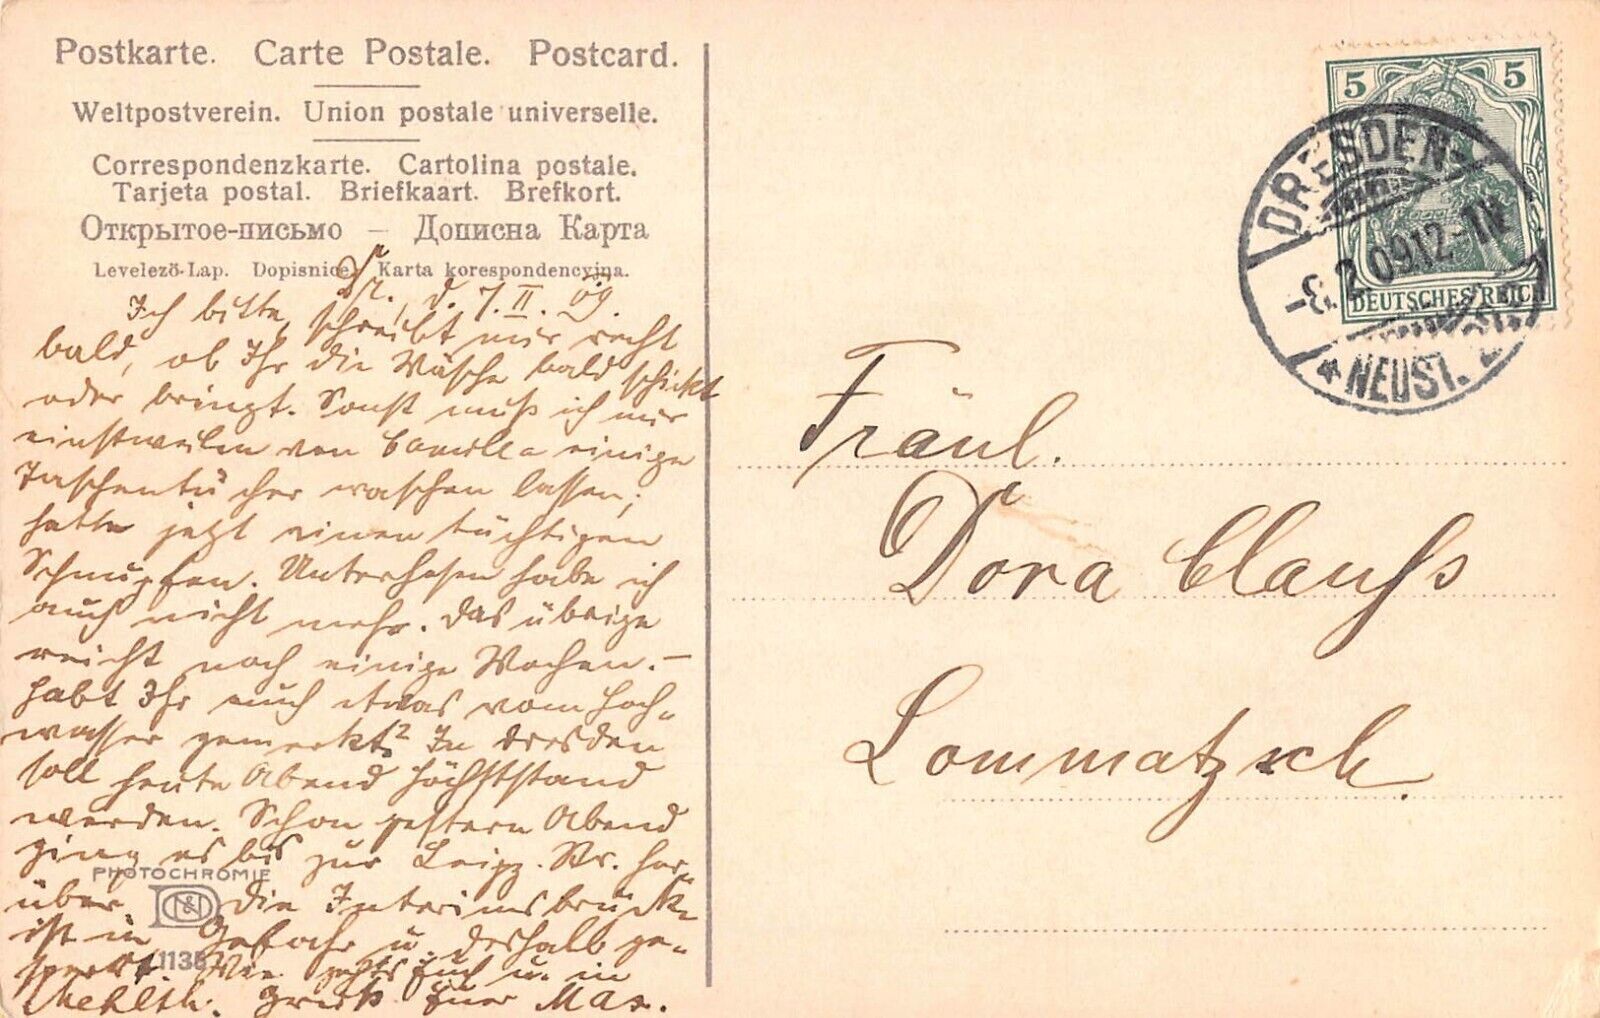 Postkarte. Carte Postale. Postcard.
Weltpostverein. Union postale universelle.
Correspondenzkarte. Cartolina postale.
Tarjeta postal. Briefkaart. Brefkort.
Открытое-письмо – Дописна Карта
Levelező-Lap. Dopisnice. Karta korespondencyjna.
Dr., d. 7. II. 09.
Ich bitte, schreibt mir recht
bald, ob Ihr die Wäsche bald schickt
oder bringt. Sonst muß ich mir
einstweilen von Camilla einige
Taschentücher waschen lassen;
hatte jetzt einen tüchtigen
Schnupfen. Unterhosen habe ich
auch nicht mehr. Das übrige
reicht noch einige Wochen. –
Habt Ihr auch etwas vom Hoch-
wasser gemerkt? In Dresden
soll heute Abend Höchststand
werden. Schon gestern Abend
ging es bis zur Leipz. Str. her-
über, die Interimsbrücke
ist in Gefahr u. deshalb ge-
sperrt. Wie gehts Euch u. in
Mehlth. Gruß Euer Max.
PHOTOCHROMIE
N&D
1135
5 5
DEUTSCHES REICH
DRESDEN-
-8.2.09.12-1N
* NEUST.
Fräul.
Dora Clauß
Lommatzsch.